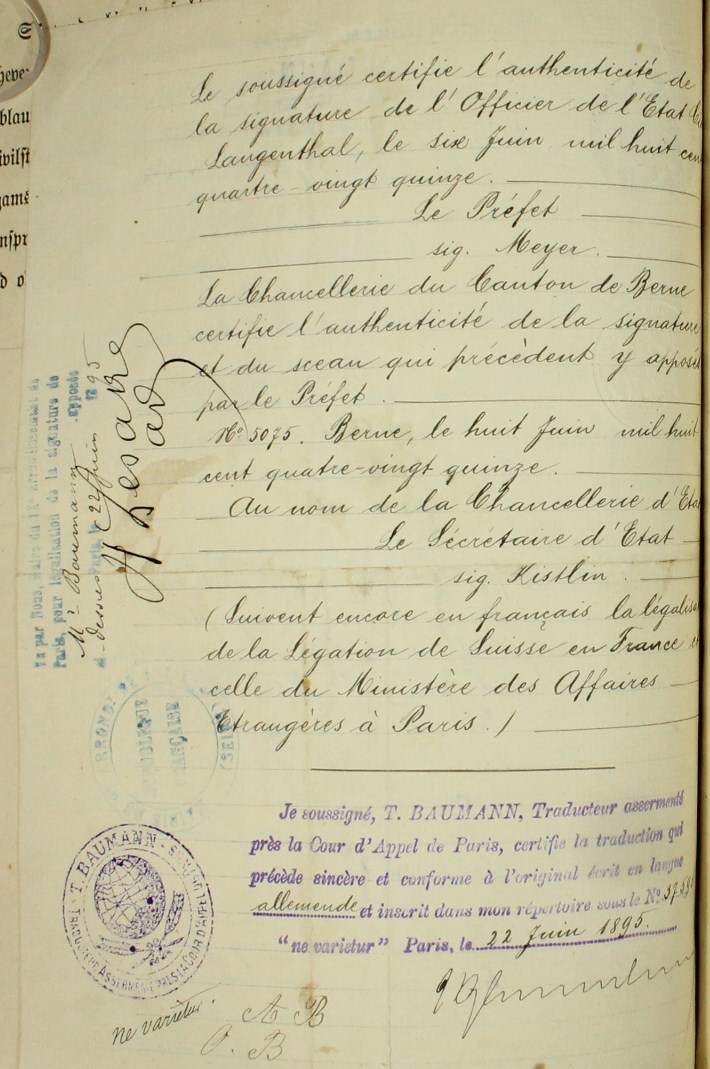 Le soussigné certifie l'authenticité de
la signature de l'Officier de l'Etat
Langenthal, le six Juin mil huit cen
quartre-vingt quinze.
Le Préfet
sig. Meyer.
La Chancellerie du Canton de Berne
certifie l'authenticité de la signature
et du sceau qui précèdent y apposé
par le Préfet.
No. 5075. Berne, le huit Juin mil huit
cent quatre-vingt quinze.
Au nom de la Chancellerie d'Eta
Le Sécrétaire d'Etat
sig. Kistlin.
(Suivent encore en français la légalisa
de la Légation de Suisse en France
celle du Ministère des Affaires
Etrangères à Paris.)
Je soussigné, T. BAUMANN, Traducteur assermenté
près la Cour d'Appel de Paris, certifie la traduction qui
précède sincère et conforme à l'original écrit en langue
allemende et inscrit dans mon répertoire sous le No.
"ne varietur" Paris, le 22 Juin 1895.
T. BAUMANN
TRADUCTEUR ASSERMENTÉ PRÈS LA COUR D'APPEL
ne varietur.
A B
O. B
Vu par Nous, Maire du Arrondissement de
Paris, pour légalisation de la signature de
Mr. Baumann apposée
ci-dessus Paris le 22 Juin 1895
RÉPUBLIQUE
FRANÇAISE
(SEINE)